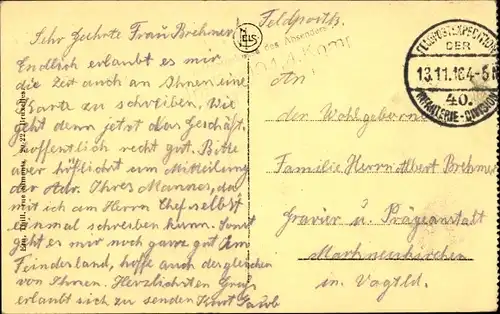 Sehr Geehrte Frau Brehmer!
Endlich erlaubt es mir
die Zeit auch an Ihnen eine
Karte zu schreiben. Wie
geht denn jetzt das Geschäft,
hoffentlich recht gut. Bitte
aber höflichst um Mitteilung
der Adr. Ihres Mannes, da
mit ich am Herrn Chef selbst
einmal schreiben kann. Sonst
geht es mir noch ganz gut am
Feinderland, hoffe auch dergleichen
von Ihnen. Herzlichsten Gruß
erlaubt sich zu senden Kurt
Feldpostk.
des Absenders
FELDPOSTEXPEDITION
DER
13.11.16 4-5N
40.
INFANTERIE-DIVISION
An
der Wohlgeborne
Familie Herrn Albert Brehmer
Gravier u. Prägeanstalt
Markneukirchen
in Vogtld.
Edit. Thill, rue